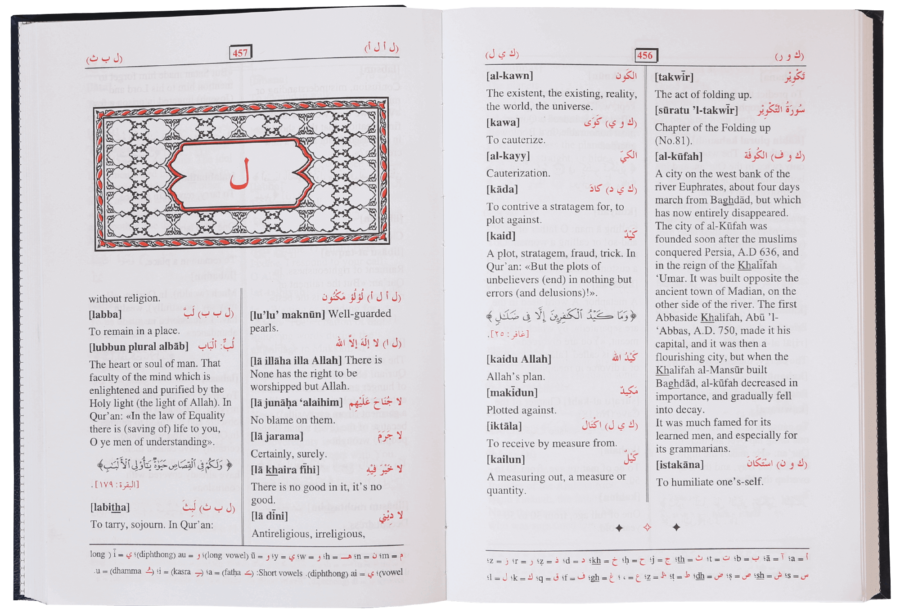 (ك و ر) 456 (ك ي ل)
[takwīr] تَكْوِيْر
The act of folding up.
[sūratu 'l-takwīr] سُورَةُ التَّكْوِيْر
Chapter of the Folding up
(No.81).
[al-kūfah] (ك و ف) الكُوفَة
A city on the west bank of the
river Euphrates, about four days
march from Baghdād, but which
has now entirely disappeared.
The city of al-Kūfah was
founded soon after the muslims
conquered Persia, A.D 636, and
in the reign of the Khalīfah
‘Umar. It was built opposite the
ancient town of Madian, on the
other side of the river. The first
Abbaside Khalifah, Abū 'l-
‘Abbas, A.D. 750, made it his
capital, and it was then a
flourishing city, but when the
Khalifah al-Mansūr built
Baghdād, al-kūfah decreased in
importance, and gradually fell
into decay.
It was much famed for its
learned men, and especially for
its grammarians.
[istakāna] (ك و ن) اسْتَكَانَ
To humiliate one's-self.
[al-kawn] الكَون
The existent, the existing, reality,
the world, the universe.
[kawa] (ك و ي) كَوَى
To cauterize.
[al-kayy] الكَيّ
Cauterization.
[kāda] (ك ي د) كادَ
To contrive a stratagem for, to
plot against.
[kaid] كَيْدٌ
A plot, stratagem, fraud, trick. In
Qur'an: «But the plots of
unbelievers (end) in nothing but
errors (and delusions)!».
﴿ وَمَا كَيْدُ الْكَافِرِينَ إِلَّا فِي ضَلَالٍ ﴾
[غافر: ٢٥].
[kaidu Allah] كَيْدُ الله
Allah's plan.
[makīdun] مَكيدٌ
Plotted against.
[iktāla] (ك ي ل) اكْتَالَ
To receive by measure from.
[kailun] كَيْلٌ
A measuring out, a measure or
quantity.
(ل أ ل أ) 457 (ل ب ث)
ل
(ل أ ل أ) لُؤْلُؤ مَكْنُون
[lu'lu' maknūn] Well-guarded
pearls.
(ل ا) لا إِلَهَ إِلاَّ الله
[lā illāha illa Allah] There is
None has the right to be
worshipped but Allah.
[lā junāḥa ‘alaihim] لا جُنَاحَ عَلَيْهِم
No blame on them.
[lā jarama] لا جَرَمَ
Certainly, surely.
[lā khaira fīhi] لا خَيْرَ فِيهِ
There is no good in it, it's no
good.
[lā dīni] لا دِيْنِي
Antireligious, irreligious,
without religion.
[labba] (ل ب ب) لَبَّ
To remain in a place.
[lubbun plural albāb] لُبٌّ: ألْبَاب
The heart or soul of man. That
faculty of the mind which is
enlightened and purified by the
Holy light (the light of Allah). In
Qur'an: «In the law of Equality
there is (saving of) life to you,
O ye men of understanding».
﴿ وَلَكُمْ فِي الْقِصَاصِ حَيَوٰةٌ يَا أُولِي الْأَلْبَابِ ﴾
[البقرة: ١٧٩].
[labitha] (ل ب ث) لَبِثَ
To tarry, sojourn. In Qur'an: